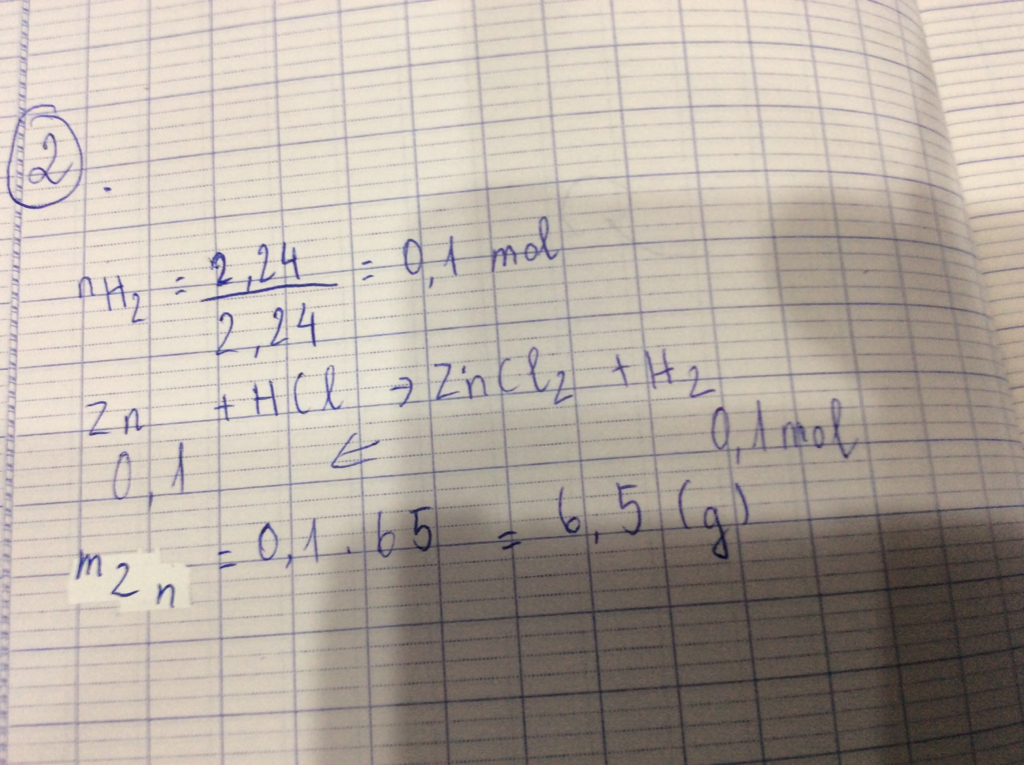 2.
nH2 = 2,24 / 2,24 = 0,1 mol
Zn + HCl → ZnCl2 + H2
0,1 ← 0,1 mol
mZn = 0,1 . 65 = 6,5 (g)